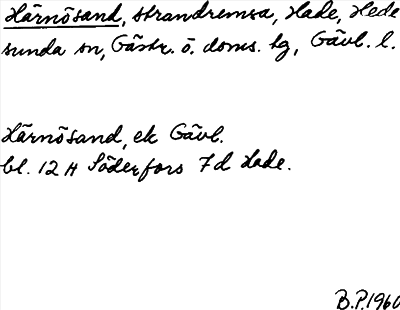 Härnösand, strandremsa, Hade, Hede
sunda sn, Gästr. ö. doms. tg, Gävl. l.
Härnösand, ek Gävl.
bl. 12 H Söderfors 7 d Hade.
B.P. 1960